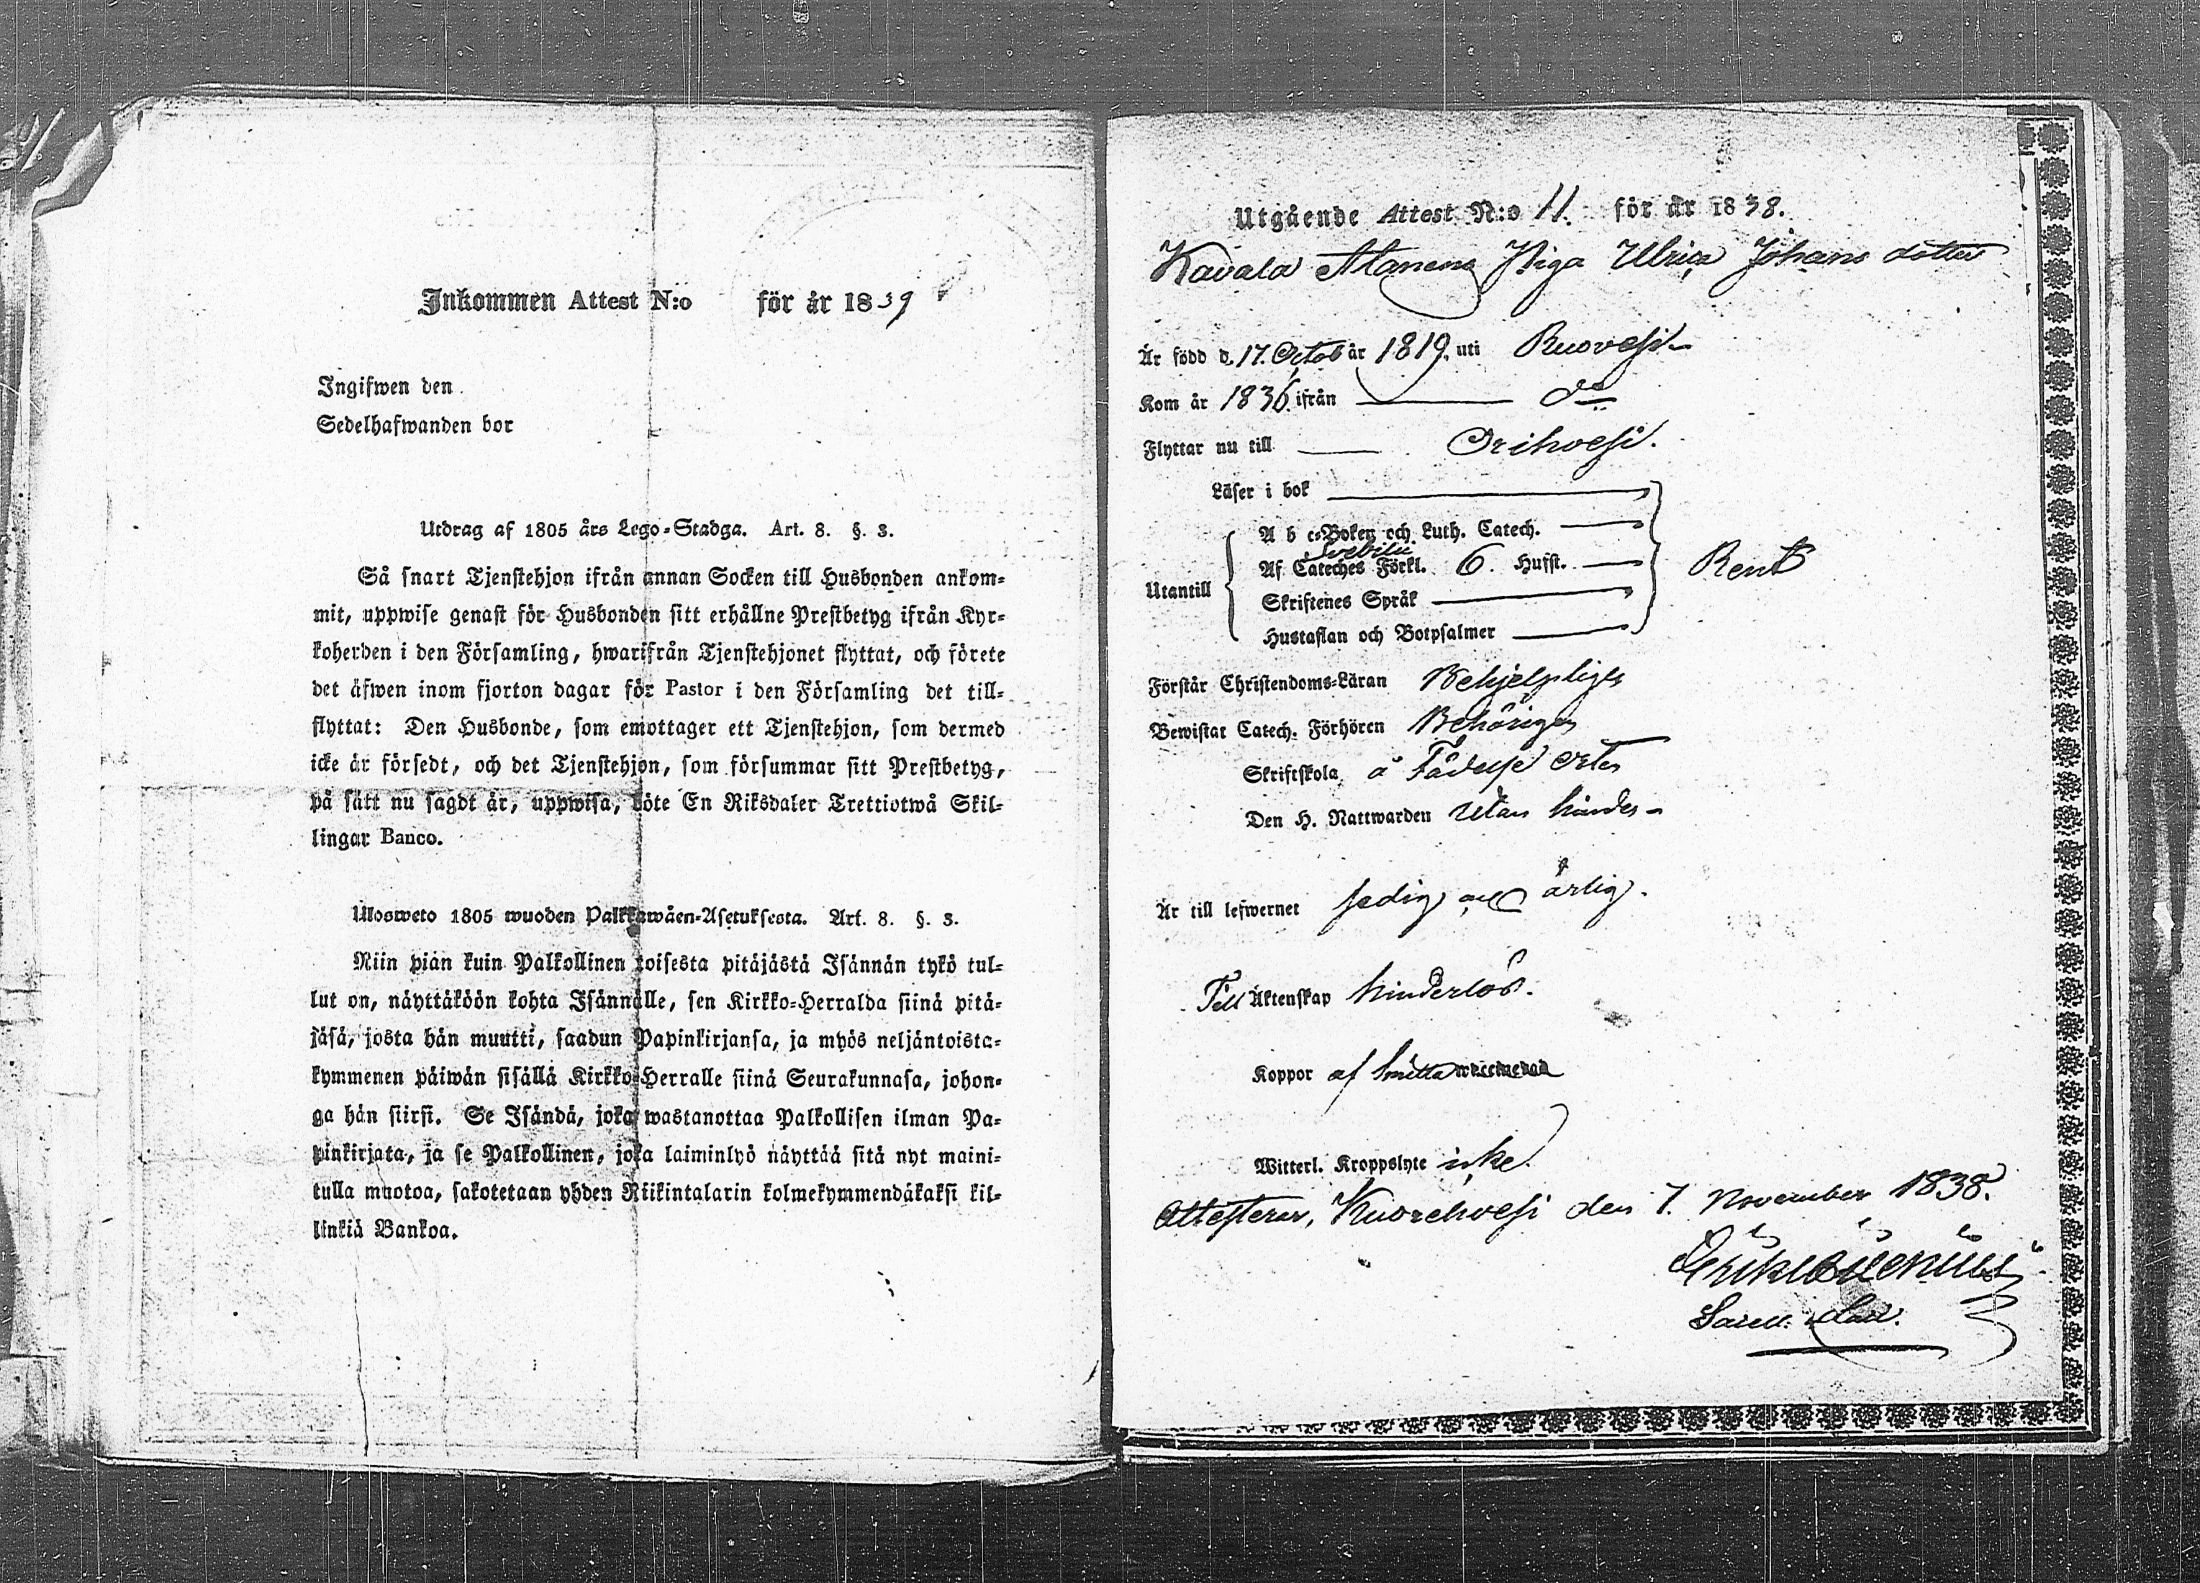 Inkommen Attest N:o för år 1839
Ingifwen den
Sedelhafwanden bor
Utdrag af 1805 års Lego-Stadga. Art. 8. §. 3.
Så snart Tjenstehjon ifrån annan Socken till Husbonden ankom-
mit, uppwise genast för Husbonden sitt erhållne Prestbetyg ifrån Kyr-
koherden i den Församling, hwarifrån Tjenstehjonet flyttat, och förete
det äfwen inom fjorton dagar för Pastor i den Församling det till-
flyttat: Den Husbonde, som emottager ett Tjenstehjon, som dermed
icke är försedt, och det Tjenstehjon, som försummar sitt Prestbetyg,
på sätt nu sagdt är, uppwisa, böte En Riksdaler Trettiotwå Skil-
lingar Banco.
Ulosweto 1805 wuoden Palkkawäen-Asetuksesta. Art. 8. §. 3.
Niin pian kuin Palkollinen toisesta pitäjästä Isännän tykö tul-
lut on, näyttäköön kohta Isännälle, sen Kirkko-Herralda siinä pitä-
jäsä, josta hän muutti, saadun Papinkirjansa, ja myös neljäntoista-
kymmenen päiwän sisällä Kirkko-Herralle siinä Seurakunnasa, johon-
ga hän siirsi. Se Isändä, joka wastanottaa Palkollisen ilman Pa-
pinkirjata, ja se Palkollinen, joka laiminlyö näyttää sitä nyt maini-
tulla muotoa, sakotetaan yhden Riikintalarin kolmekymmendäkaksi kil-
linkiä Bankoa.
Utgående Attest N:o 11. för år 1838.
Kavala Piga Ulrica Johans dotter
Är född d. 17. Octob år 1819. uti Ruovesi
Kom år 1836. ifrån do
Flyttar nu till Orihvesi.
Läser i bok
A b c-Boken och Luth. Catech.
Svebilii
Af Cateches Förkl. 6. Hufst. Rent
Utantill
Skriftenes Språk
Hustaflan och Botpsalmer
Förstår Christendoms-Läran Behjelpligt
Bewistat Catech. Förhören Behörigen
Skriftskola å Födelse orten
Den H. Nattwarden utan hinder
Är till lefwernet sedig och ärlig.
Till Äktenskap hinderlös.
Koppor af smitta
Witterl. Kroppslyte icke.
Attesterar, Kuorehvesi den 7. November 1838.